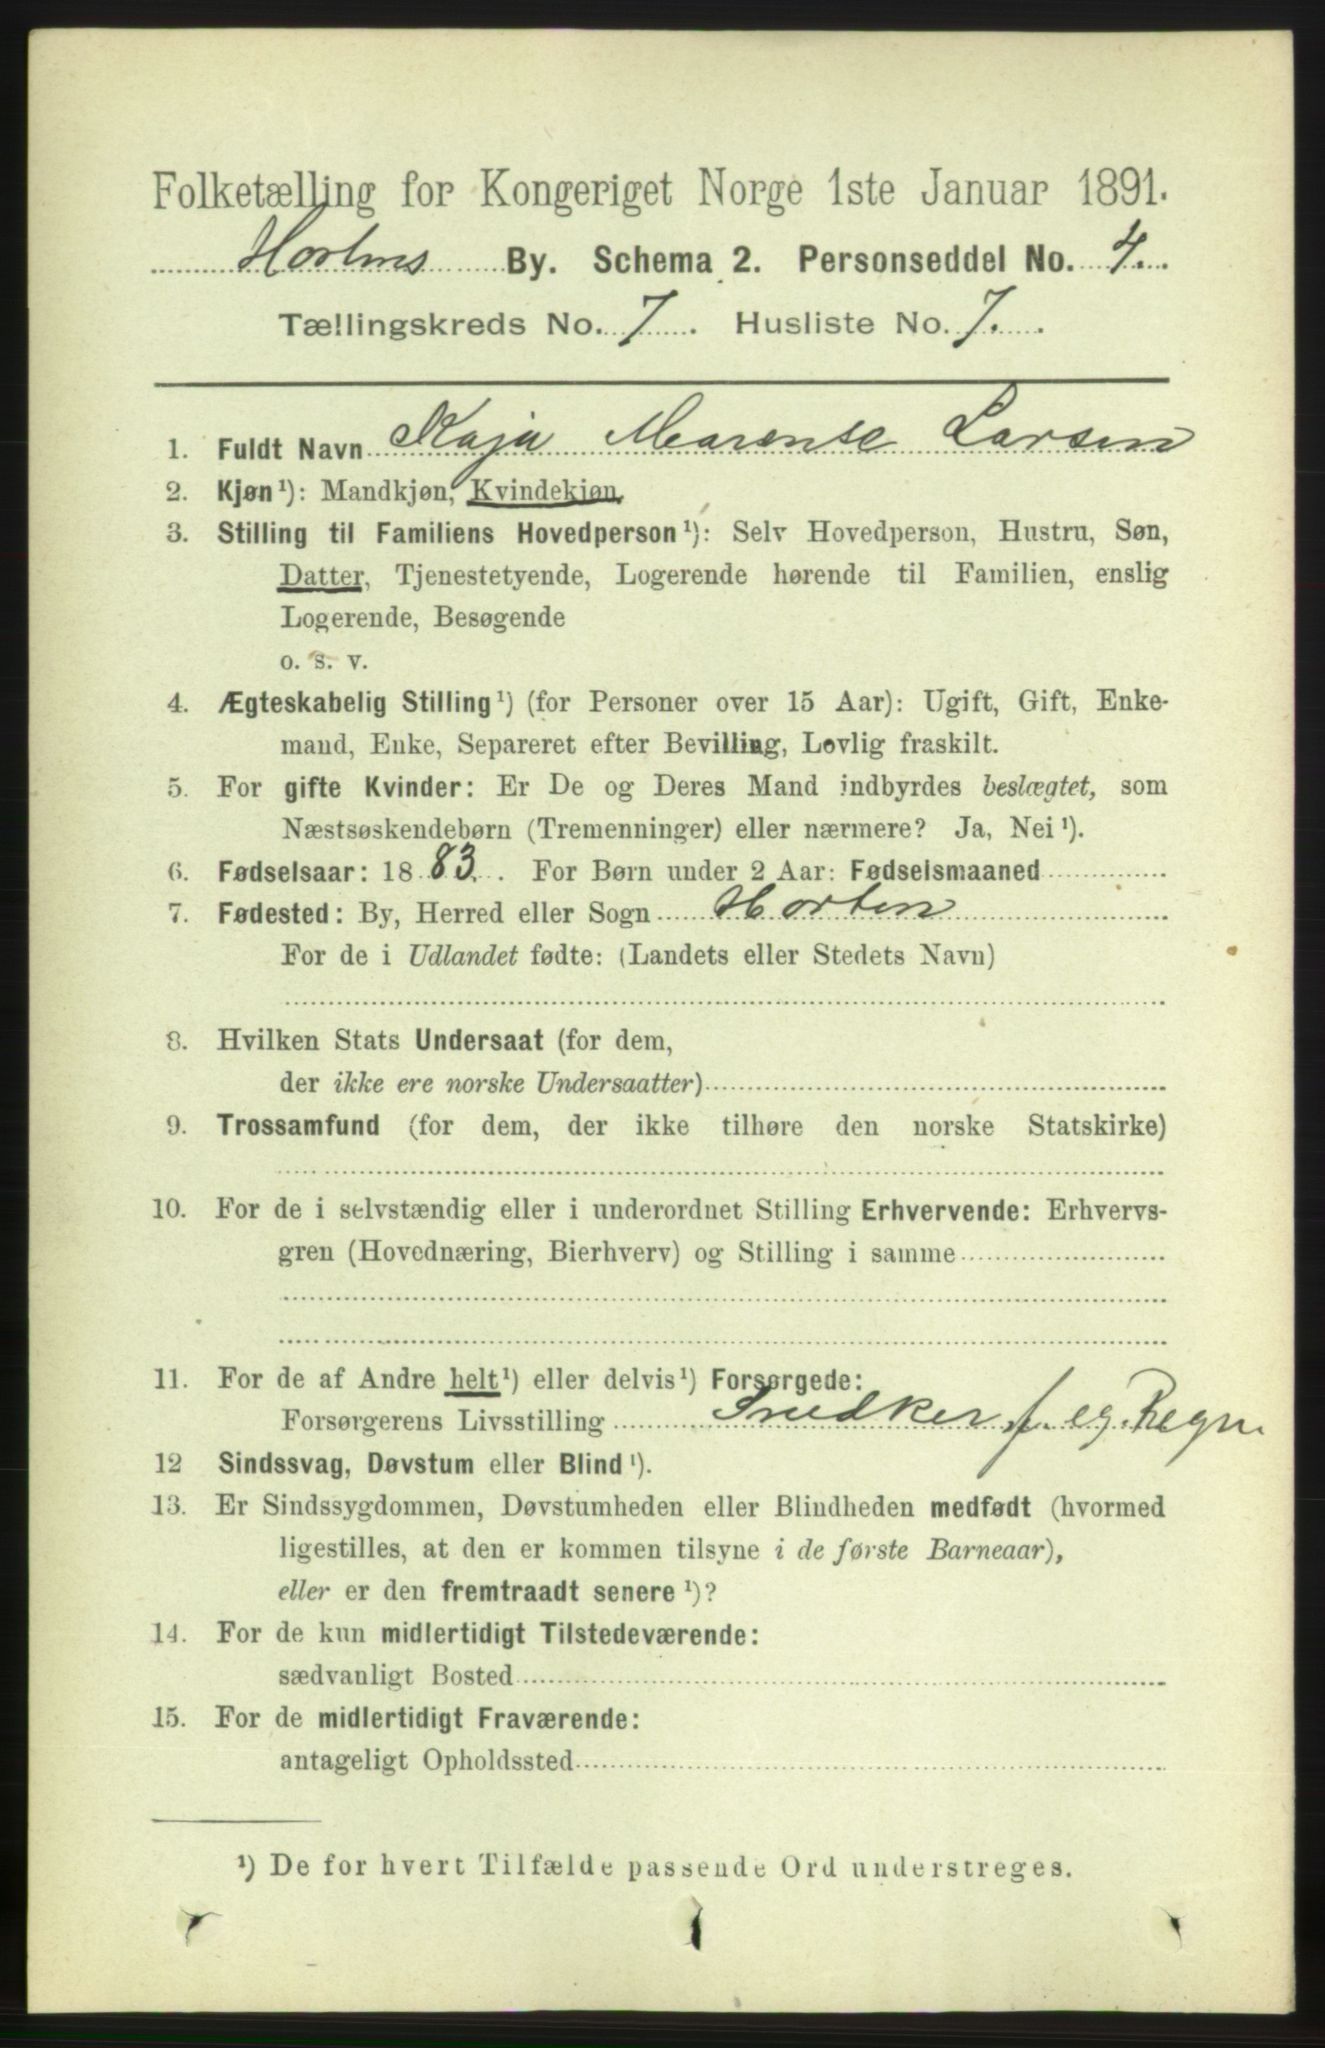 Folketælling for Kongeriget Norge 1ste Januar 1891.
Hortens By. Schema 2. Personseddel No. 4.
Tællingskreds No. 7. Husliste No. 7.
1. Fuldt Navn Kaja Marense Larsen
2. Kjøn¹): Mandkjøn, Kvindekjøn.
3. Stilling til Familiens Hovedperson¹): Selv Hovedperson, Hustru, Søn,
Datter, Tjenestetyende, Logerende hørende til Familien, enslig
Logerende, Besøgende
o. s. v.
4. Ægteskabelig Stilling¹) (for Personer over 15 Aar): Ugift, Gift, Enke-
mand, Enke, Separeret efter Bevilling, Lovlig fraskilt.
5. For gifte Kvinder: Er De og Deres Mand indbyrdes beslægtet, som
Næstsøskendebørn (Tremenninger) eller nærmere? Ja, Nei¹).
6. Fødselsaar: 1883. For Børn under 2 Aar: Fødselsmaaned
7. Fødested: By, Herred eller Sogn Horten
For de i Udlandet fødte: (Landets eller Stedets Navn)
8. Hvilken Stats Undersaat (for dem,
der ikke ere norske Undersaatter)
9. Trossamfund (for dem, der ikke tilhøre den norske Statskirke)
10. For de i selvstændig eller i underordnet Stilling Erhvervende: Erhvervs-
gren (Hovednæring, Bierhverv) og Stilling i samme
11. For de af Andre helt¹) eller delvis¹) Forsørgede:
Forsørgerens Livsstilling Snedker f. eg. Regn.
12 Sindssvag, Døvstum eller Blind¹).
13. Er Sindssygdommen, Døvstumheden eller Blindheden medfødt (hvormed
ligestilles, at den er kommen tilsyne i de første Barneaar),
eller er den fremtraadt senere¹)?
14. For de kun midlertidigt Tilstedeværende:
sædvanligt Bosted
15. For de midlertidigt Fraværende:
antageligt Opholdssted
¹) De for hvert Tilfælde passende Ord understreges.